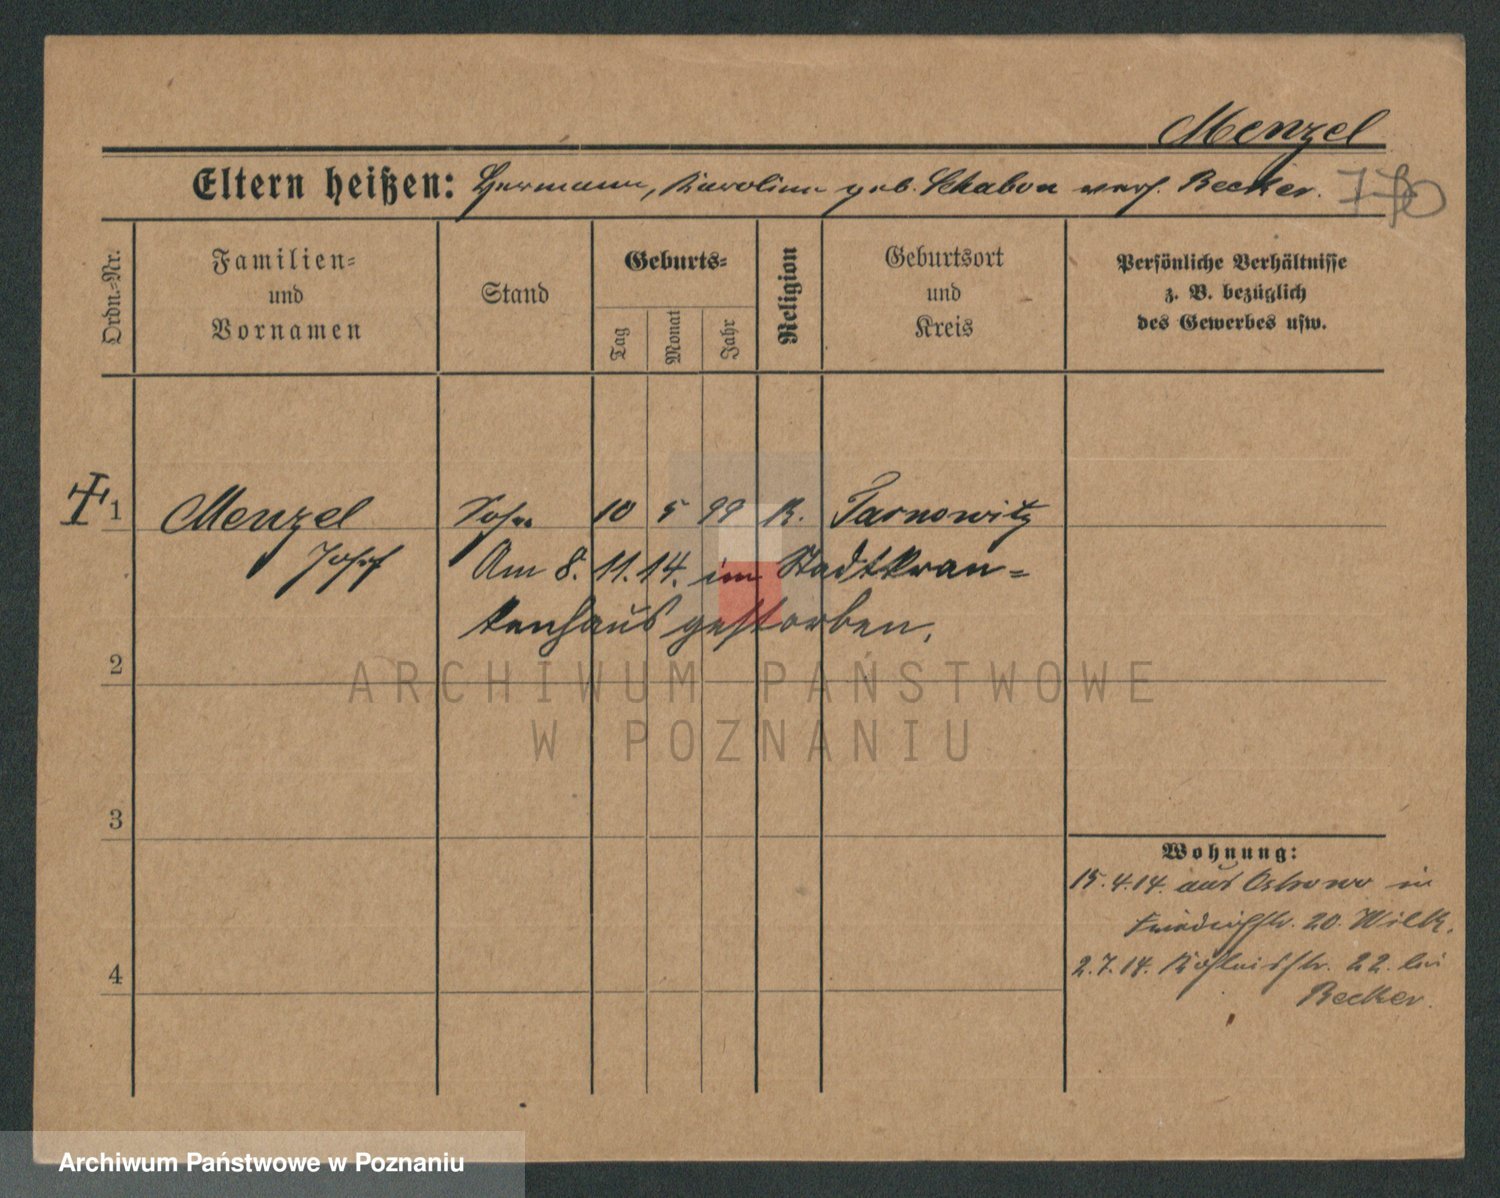 Menzel
Eltern heißen: Hermann, Karolina geb. Schabon verh. Becker.
Ordn.-Nr.
Familien-
und
Vornamen
Stand
Geburts-
Tag
Monat
Jahr
Religion
Geburtsort
und
Kreis
Persönliche Verhältnisse
z. B. bezüglich
des Gewerbes usw.
1 Menzel Sohn 10 5 99 K. Tarnowitz
Josef Am 8. 11. 14. im Stadtkran-
kenhaus gestorben.
2
ARCHIWUM PAŃSTWOWE
W POZNANIU
3
Wohnung:
15.4.14. aus Ostrowo in
Friedrichstr. 20. Wilk.
4
2.7.14. 22. bei
Becker.
Archiwum Państwowe w Poznaniu